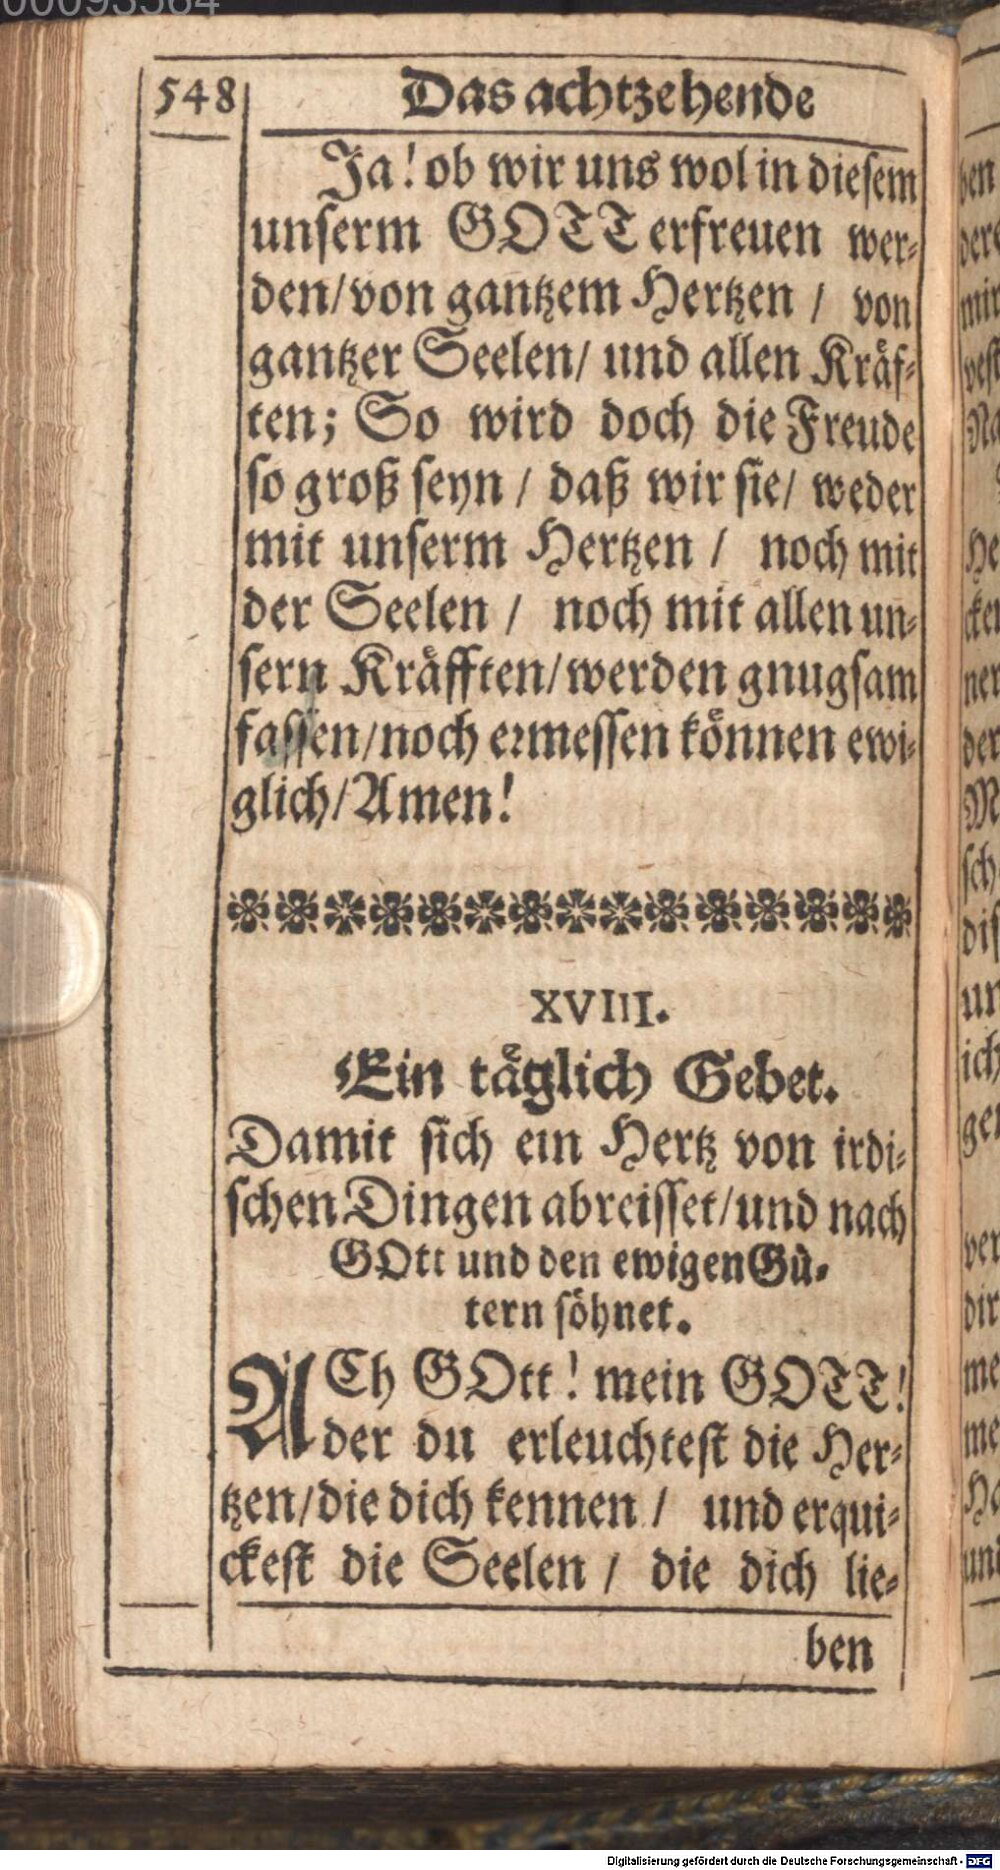 548
Das achtzehende
Ja! ob wir uns wol in diesem
unserm GOTT erfreuen wer-
den/von gantzem Hertzen / von
gantzer Seelen/ und allen Kräf-
ten; So wird doch die Freude
so groß seyn / daß wir sie/ weder
mit unserm Hertzen / noch mit
der Seelen / noch mit allen un-
sern Kräfften/werden gnugsam
fassen/noch ermessen können ewi-
glich/Amen!
XVIII.
Ein täglich Gebet.
Damit sich ein Hertz von irdi-
schen Dingen abreisset/und nach
GOtt und den ewigen Gü-
tern söhnet.
ACh GOtt! mein GOTT!
der du erleuchtest die Her-
tzen/die dich kennen / und erqui-
ckest die Seelen / die dich lie-
ben
Digitalisierung gefördert durch die Deutsche Forschungsgemeinschaft - DFG